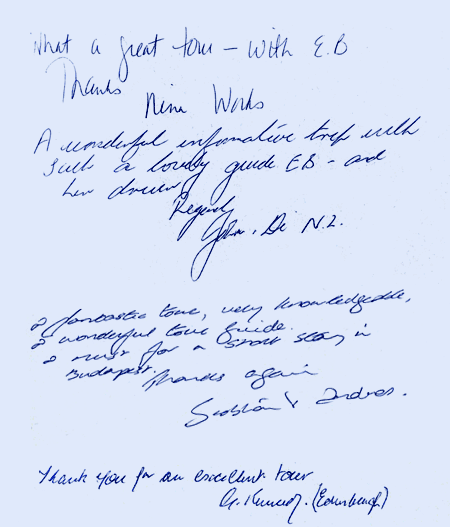 What a great tour - with E.B
Thanks
Nina Works
A wonderful informative trip with
such a lovely guide EB - and
her driver
Regards
John, Di N.Z.
a fantastic tour, very knowledgeable,
a wonderful tour guide.
a must for a short stay in
Budapest.
Thanks again
Siobhán & Andrew.
Thank you for an excellent tour
G. Kennedy. (Edinburgh)